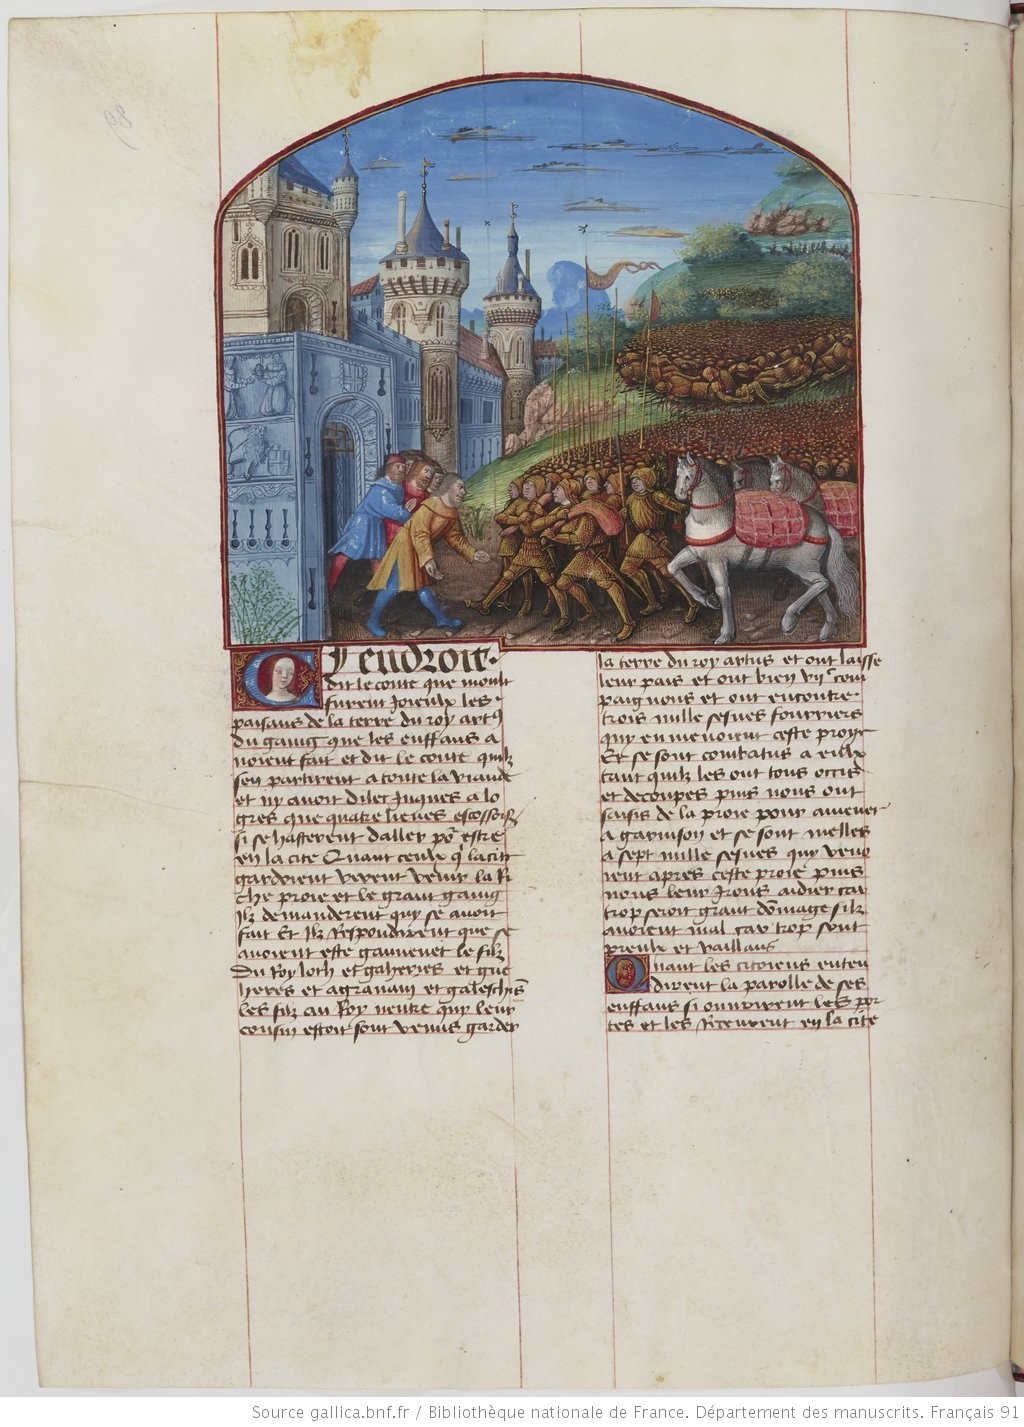 Cy endroit
dit le conte que moult
furent Joieulx les
paisans de la terre du roy artus
du gaing que les enffans a
uoient fait et dit le conte quilz
sen partirent a toute la viande
et ny auoit dilec Jusques a lo
gres que quatre lieues escossoises
si se hasterent daller por estre
en la cite Quant ceulx q la cite
gardoient virent venir la Ri
che proie et le grant gaing
Ilz demanderent quy se auoit
fait Et Ilz Respondirent que se
auoient este gauuenet le filz
du Roy loth et gaheries et gue
heres et agrauain et galeschis
les filz au Roy neutre quy leur
cousin estoit sont venus garder
la terre du roy artus et ont laisse
leur pais et ont bien vijc com
paignons et ont encontre
trois mille sesnes fourriers
quy en menoient ceste proye
Et se sont combatus a eulx
tant quilz les ont tous occis
et decoupes puis nous ont
saisis de la proie pour amener
a garnison et se sont melles
a sept mille sesnes quy veno
ient apres ceste proie puis
nous leur Irons aidier car
trop seroit grant dommage silz
auoient mal car trop sont
preulx et vaillans
Quant les citoiens enten
dirent la parolle de ses
enffans si ouurirent les por
tes et les Receurent en la cite
Source gallica.bnf.fr / Bibliothèque nationale de France. Département des manuscrits. Français 91